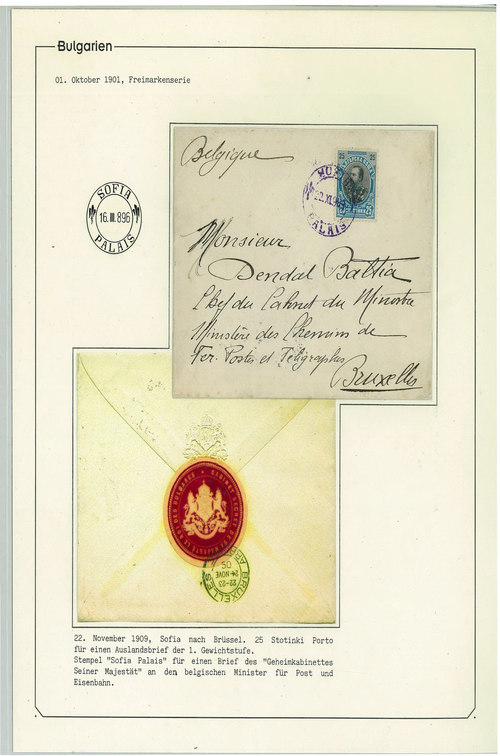 Bulgarien
01. Oktober 1901, Freimarkenserie
SOFIA
16.III.896
PALAIS
Belgique
25
25
PALAIS
Monsieur
Dendal Baltia
Chef du Cabinet du Ministre
Ministère des Chemins de
Fer. Postes et Télégraphes
Bruxelles
CABINET SECRET DE SA MAJESTÉ LE ROI DES BULGARES
BRUXELLES
22-23
24 NOVE
22. November 1909, Sofia nach Brüssel. 25 Stotinki Porto
für einen Auslandsbrief der 1. Gewichtstufe.
Stempel "Sofia Palais" für einen Brief des "Geheimkabinettes
Seiner Majestät" an den belgischen Minister für Post und
Eisenbahn.